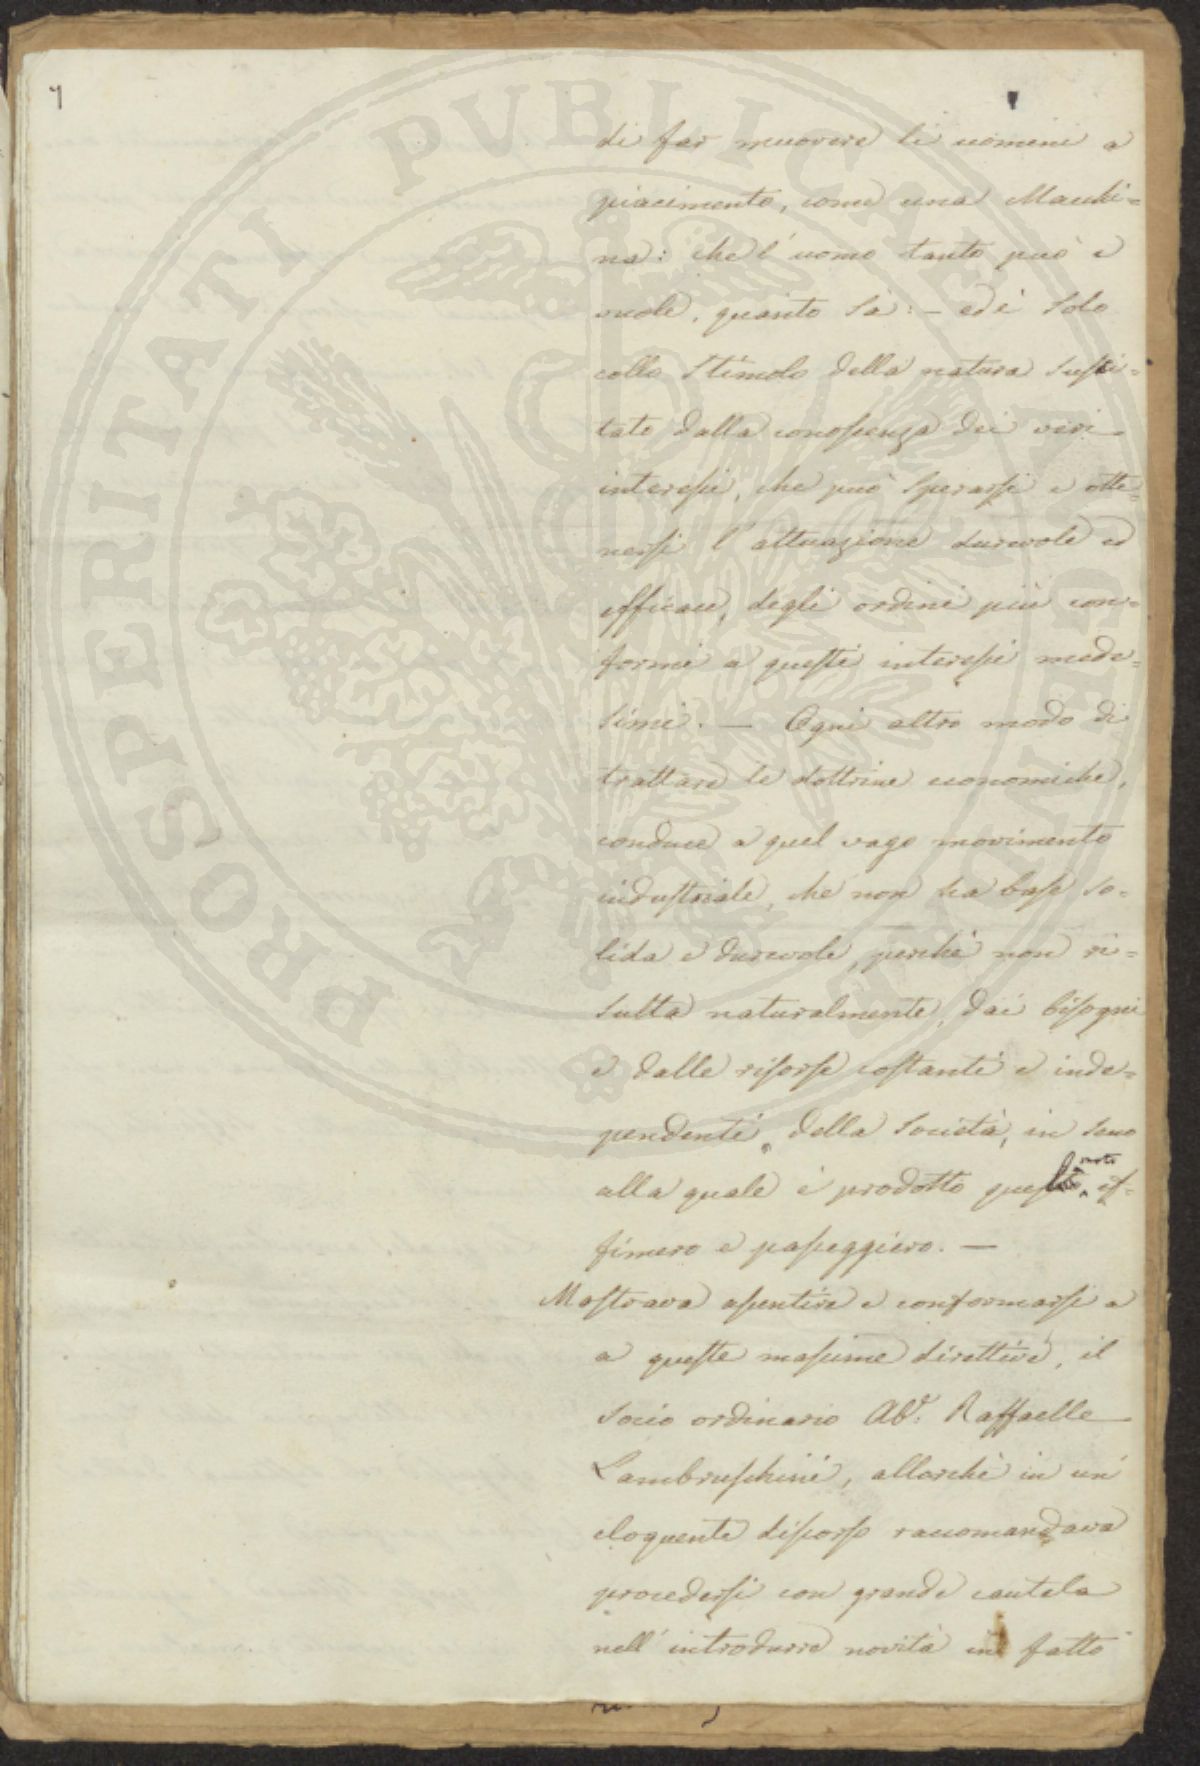 7
di far muovere li uomini a
piacimento, come una Macchi=
na: che l'uomo tanto può e
vuole, quanto sà: – ed è solo
collo Stimolo della natura susci=
tato dalla conoscenza dei veri
interessi, che può sperarsi e otte=
nersi l'attuazione durevole ed
efficace, degli ordini più con=
formi a questi interessi mede=
simi. — Ogni altro modo di
trattare le dottrine economiche,
conduce a quel vago movimento
industriale, che non ha base so=
lida e durevole, perchè non ri=
sulta naturalmente, dai bisogni
e dalle risorse costanti e inde=
pendenti, della Società, in seno
alla quale è prodotto quel moto ef=
fimero e passeggiero. —
Mostrava assentire e conformarsi a
a queste massime direttive, il
Socio ordinario Ab.e Raffaelle
Lambruschini, allorchè in un'
eloquente discorso raccomandava
procedersi con grande cautela
nell'introdurre novità in fatto
PROSPERITATI PUBLICAE AUGENDAE